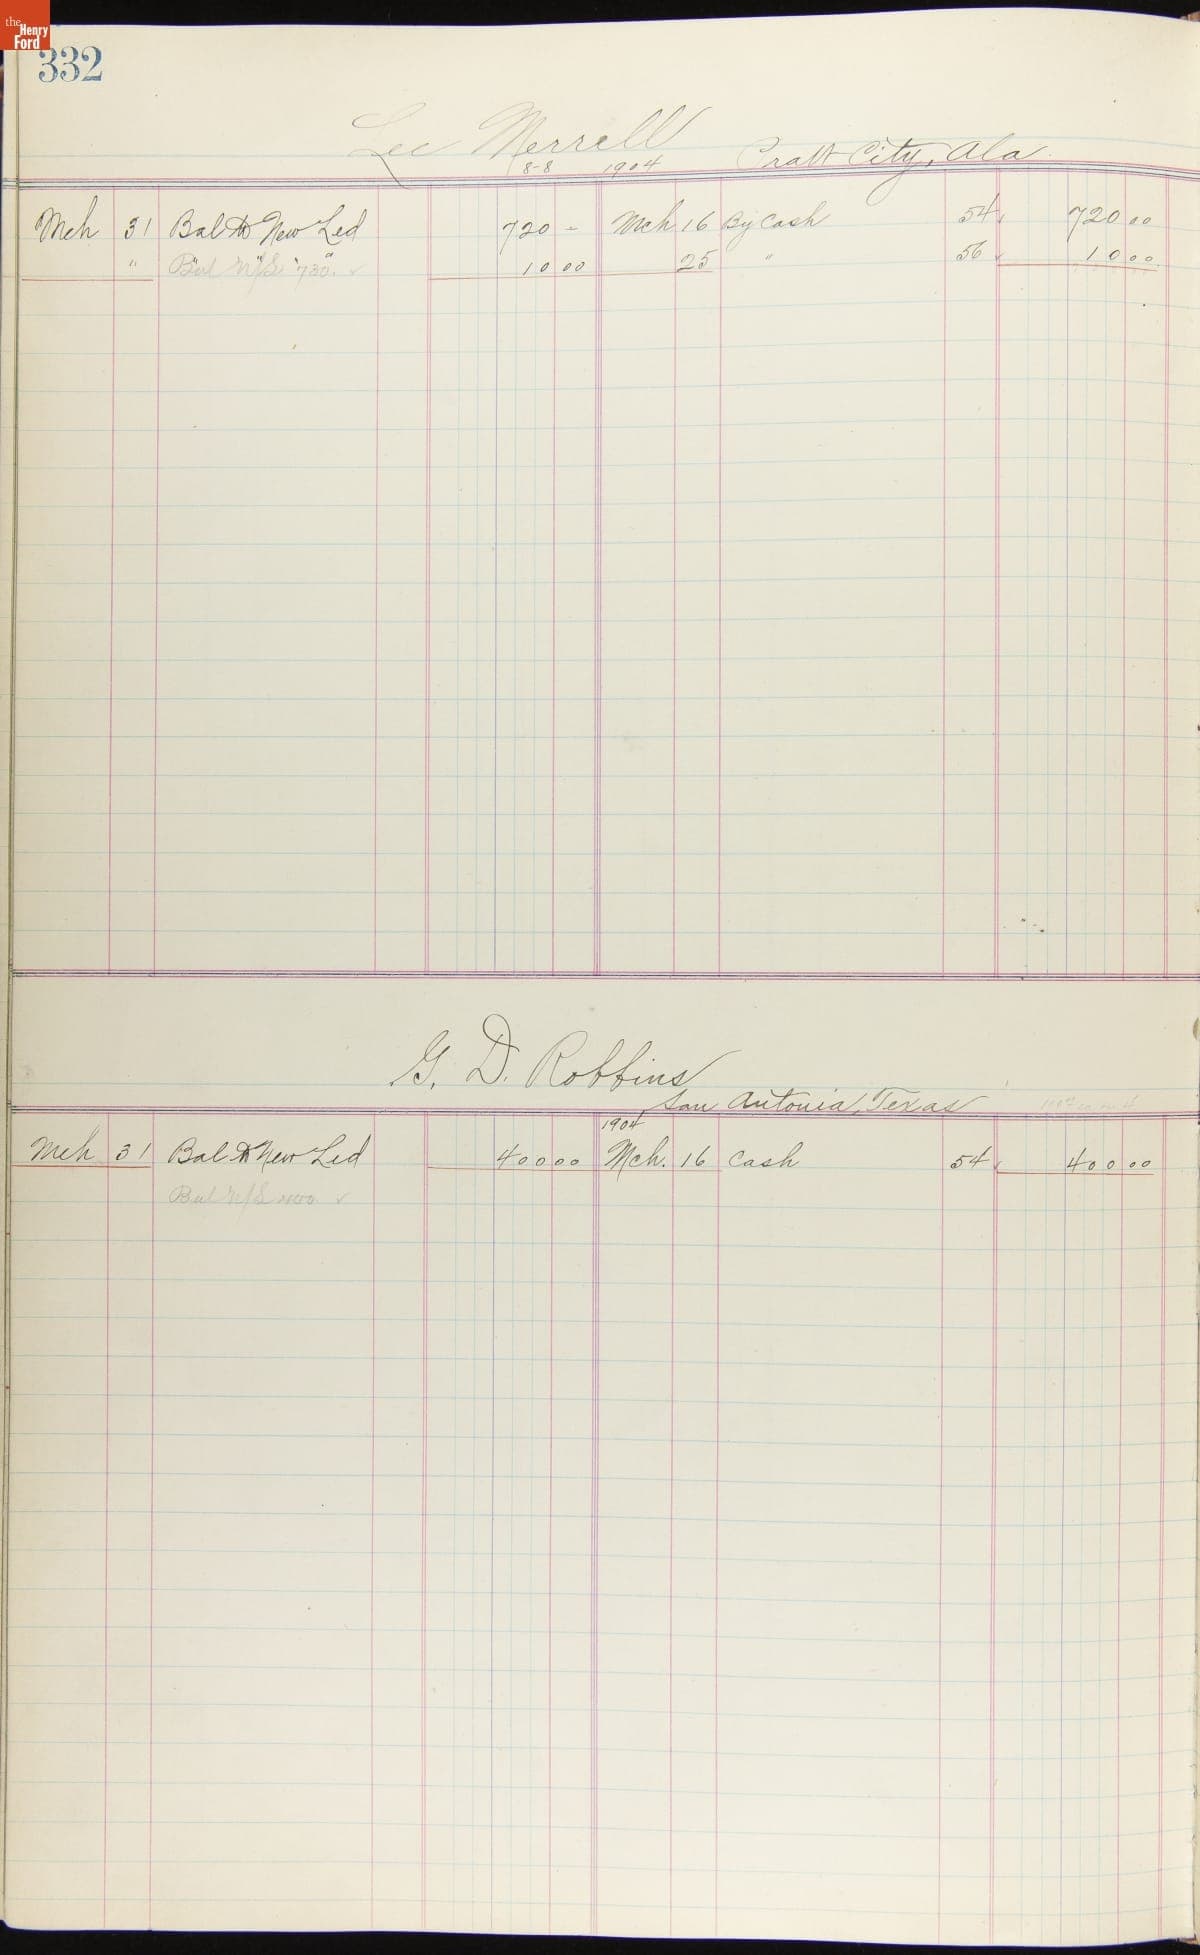 the Henry Ford
332
Lee Merrell
8-8 1904 Pratt City, Ala.
Mch 31 Bal to New Led 720 - Mch 16 By Cash 54 720 00
" " " " 10 00 25 " 56 10 00
Bal N/S 730. ✓
G. D. Robbins
San Antonia, Texas
1904
Mch 31 Bal to New Led 400 00 Mch. 16 Cash 54 400 00
Bal N/S ✓